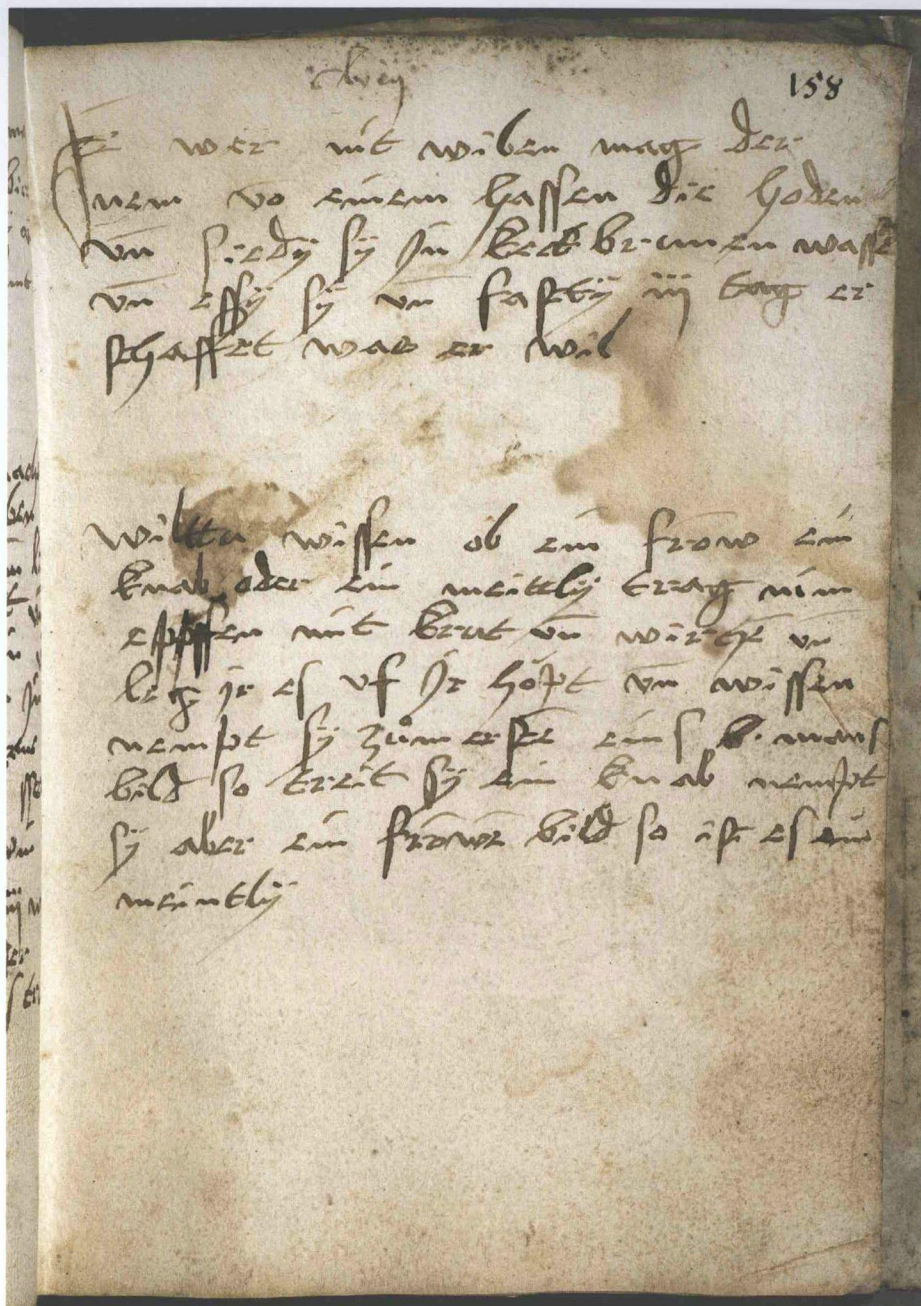 158
wer nit wiben mag der
nem vo einem hassen die hoden
vn siedÿ sÿ in keckbrunen wasse
vn essÿ sÿ vn fasttÿ iij tag er
schaffet was er wil
wilttu wissen ob ein frow ein
knab oder ein meittlÿ trag nim
epffen mit krut vn
leg ir es vf ir höpt vn wissen
nempt sÿ zům erste eins mans
bild so treit sÿ ein knab nempt
sÿ aber ein frowē bild so ist es ein
meintlÿ